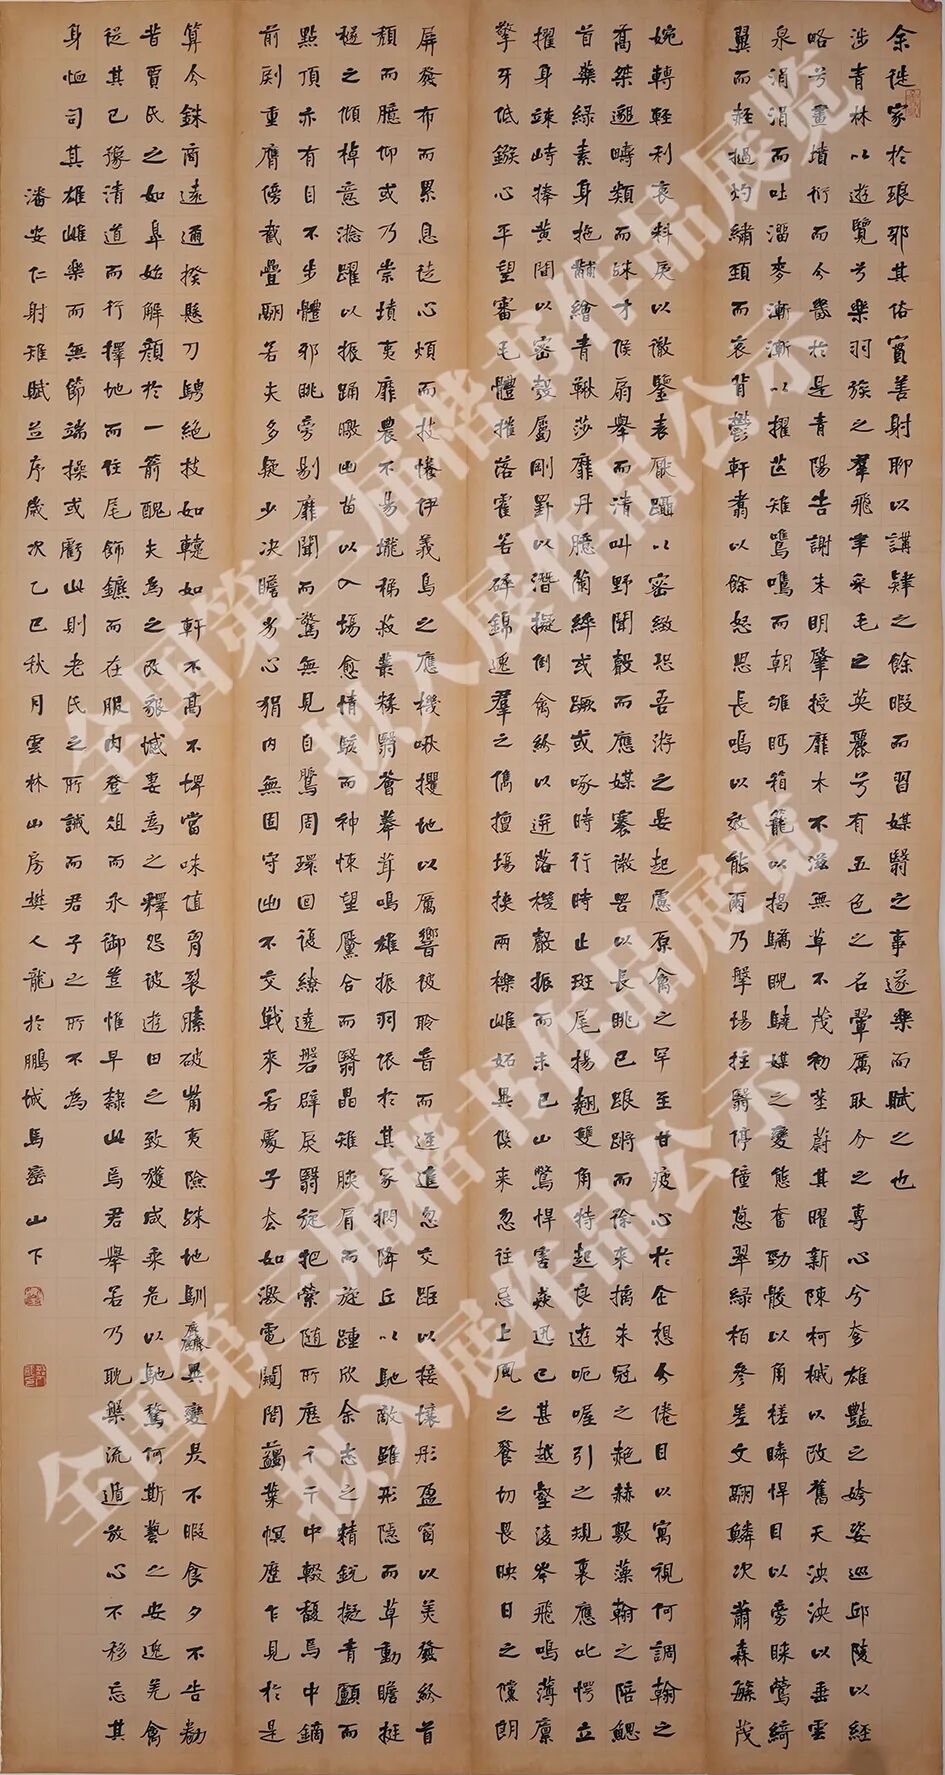 余徙家於琅邪其俗實善射聊以講肄之餘暇而習媒翳之事遂樂而賦之也
涉青林以遊覽兮樂羽族之羣飛聿采毛之英麗兮有五色之名翬厲耿介之專心兮奓雄豔之姱姿巡邱陵以經
略兮畫墳衍而分畿於是青陽告謝朱明肇授靡木不滋無草不茂初莖蔚其曜新陳柯槭以改舊天泱泱以垂雲
泉涓涓而吐溜麥漸漸以擢芒雉鷕鷕而朝雊眄箱籠以揭驕睨驍媒之變態奮勁骹以角槎瞵悍目以旁睞鶯綺
翼而赬撾灼繡頸而袞背鬱軒翥以餘怒思長鳴以效能爾乃擊場拄翳停僮蔥翠綠柏參差文翮鱗次蕭森繁茂
婉轉輕利衷料戾以徹鑒表厭躡以密緻恐吾游之晏起慮原禽之罕至甘疲心於企想分倦目以寓視何調翰之
喬桀邈疇類而殊才候扇舉而清叫野聞聲而應媒褰微罟以長眺已踉蹡而徐來摛朱冠之赩赫敷藻翰之陪鰓
首葯綠素身拖黼繪青鞦莎靡丹臆蘭綷或蹶或啄時行時止斑尾揚翹雙角特起良遊呃喔引之規裏應叱愕立
擢身竦峙捧黃間以密彀屬剛罫以潛擬倒禽紛以迸落機聲振而未已山鷩悍害猋迅已甚越壑淩岑飛鳴薄廩
擎牙低鏃心平望審毛體摧落霍若碎錦逸羣之儁擅場挾兩櫟雌妬異倏來忽往忌上風之餮切畏映日之儻朗
屏發布而累息徒心煩而技懩伊義鳥之應機啾攫地以厲響彼聆音而逕進忽交距以接壤彤盈窗以美發紛首
頹而臆仰或乃崇墳夷靡農不易壠稊菽藂糅翳薈菶茸鳴雄振羽依於其冢捫降丘以馳敵雖形隱而草動瞻挺
穟之傾掉意淰躍以振踊暾出苗以入場愈情駭而神悚望黶合而翳晶雉脥肩而旋踵欣余志之精銳擬青顱而
點項亦有目不步體邪眺旁剔靡聞而驚無見自鷔周環回復繚遶磐辟戾翳旋把縈隨所歷彳亍中輟馥焉中鏑
前剜重膺傍截疊翮若夫多疑少決膽劣心狷內無固守出不交戰來若處子去如激電闚䦗䕞葉幎歷乍見於是
算分銖商遠邇揆懸刀騁絕技如轅如軒不高不埤當咮值胷裂膆破觜夷險殊地馴麤異變昃不暇食夕不告勌
昔賈氏之如皋始解顏於一箭醜夫為之改貌憾妻為之釋怨彼遊田之致獲咸乘危以馳騖何斯藝之安逸羌禽
從其己豫清道而行擇地而住尾飾鑣而在服肉登俎而永御豈惟皁隸此焉君舉若乃耽槃流遁放心不移忘其
身恤司其雄雌樂而無節端操或虧此則老氏之所誡而君子之所不為
潘安仁射雉賦並序歲次乙巳秋月雲林山房樊人龍於鵬城馬巒山下
全国第三届楷书作品展览
拟入展作品公示
全国第三届楷书作品展览
拟入展作品公示